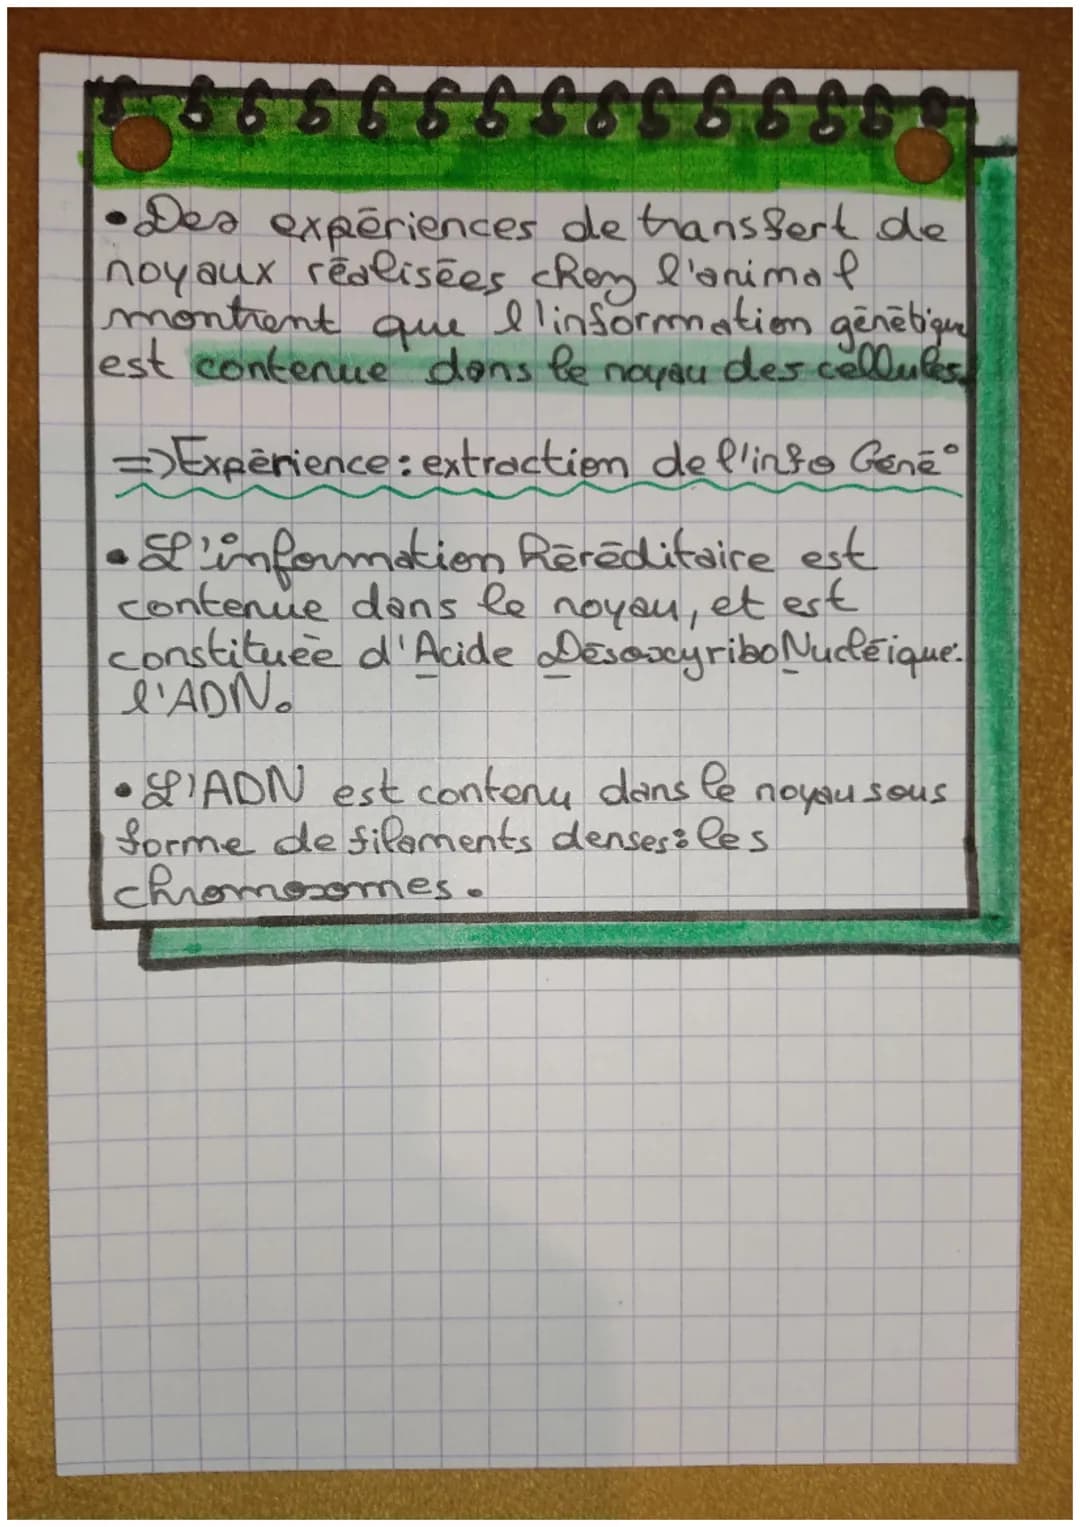 • Des expériences de transfert de
noyaux réalisées chez l'animal
montrent que l'information génétique
est contenue dans le noyau des cellules.
=> Expérience : extraction de l'info Géné°
• L'information héréditaire est
contenue dans le noyau, et est
constituée d'Acide DésoxyriboNucléique:
l'ADN.
• L'ADN est contenu dans le noyau sous
forme de filaments denses : les
chromosomes.